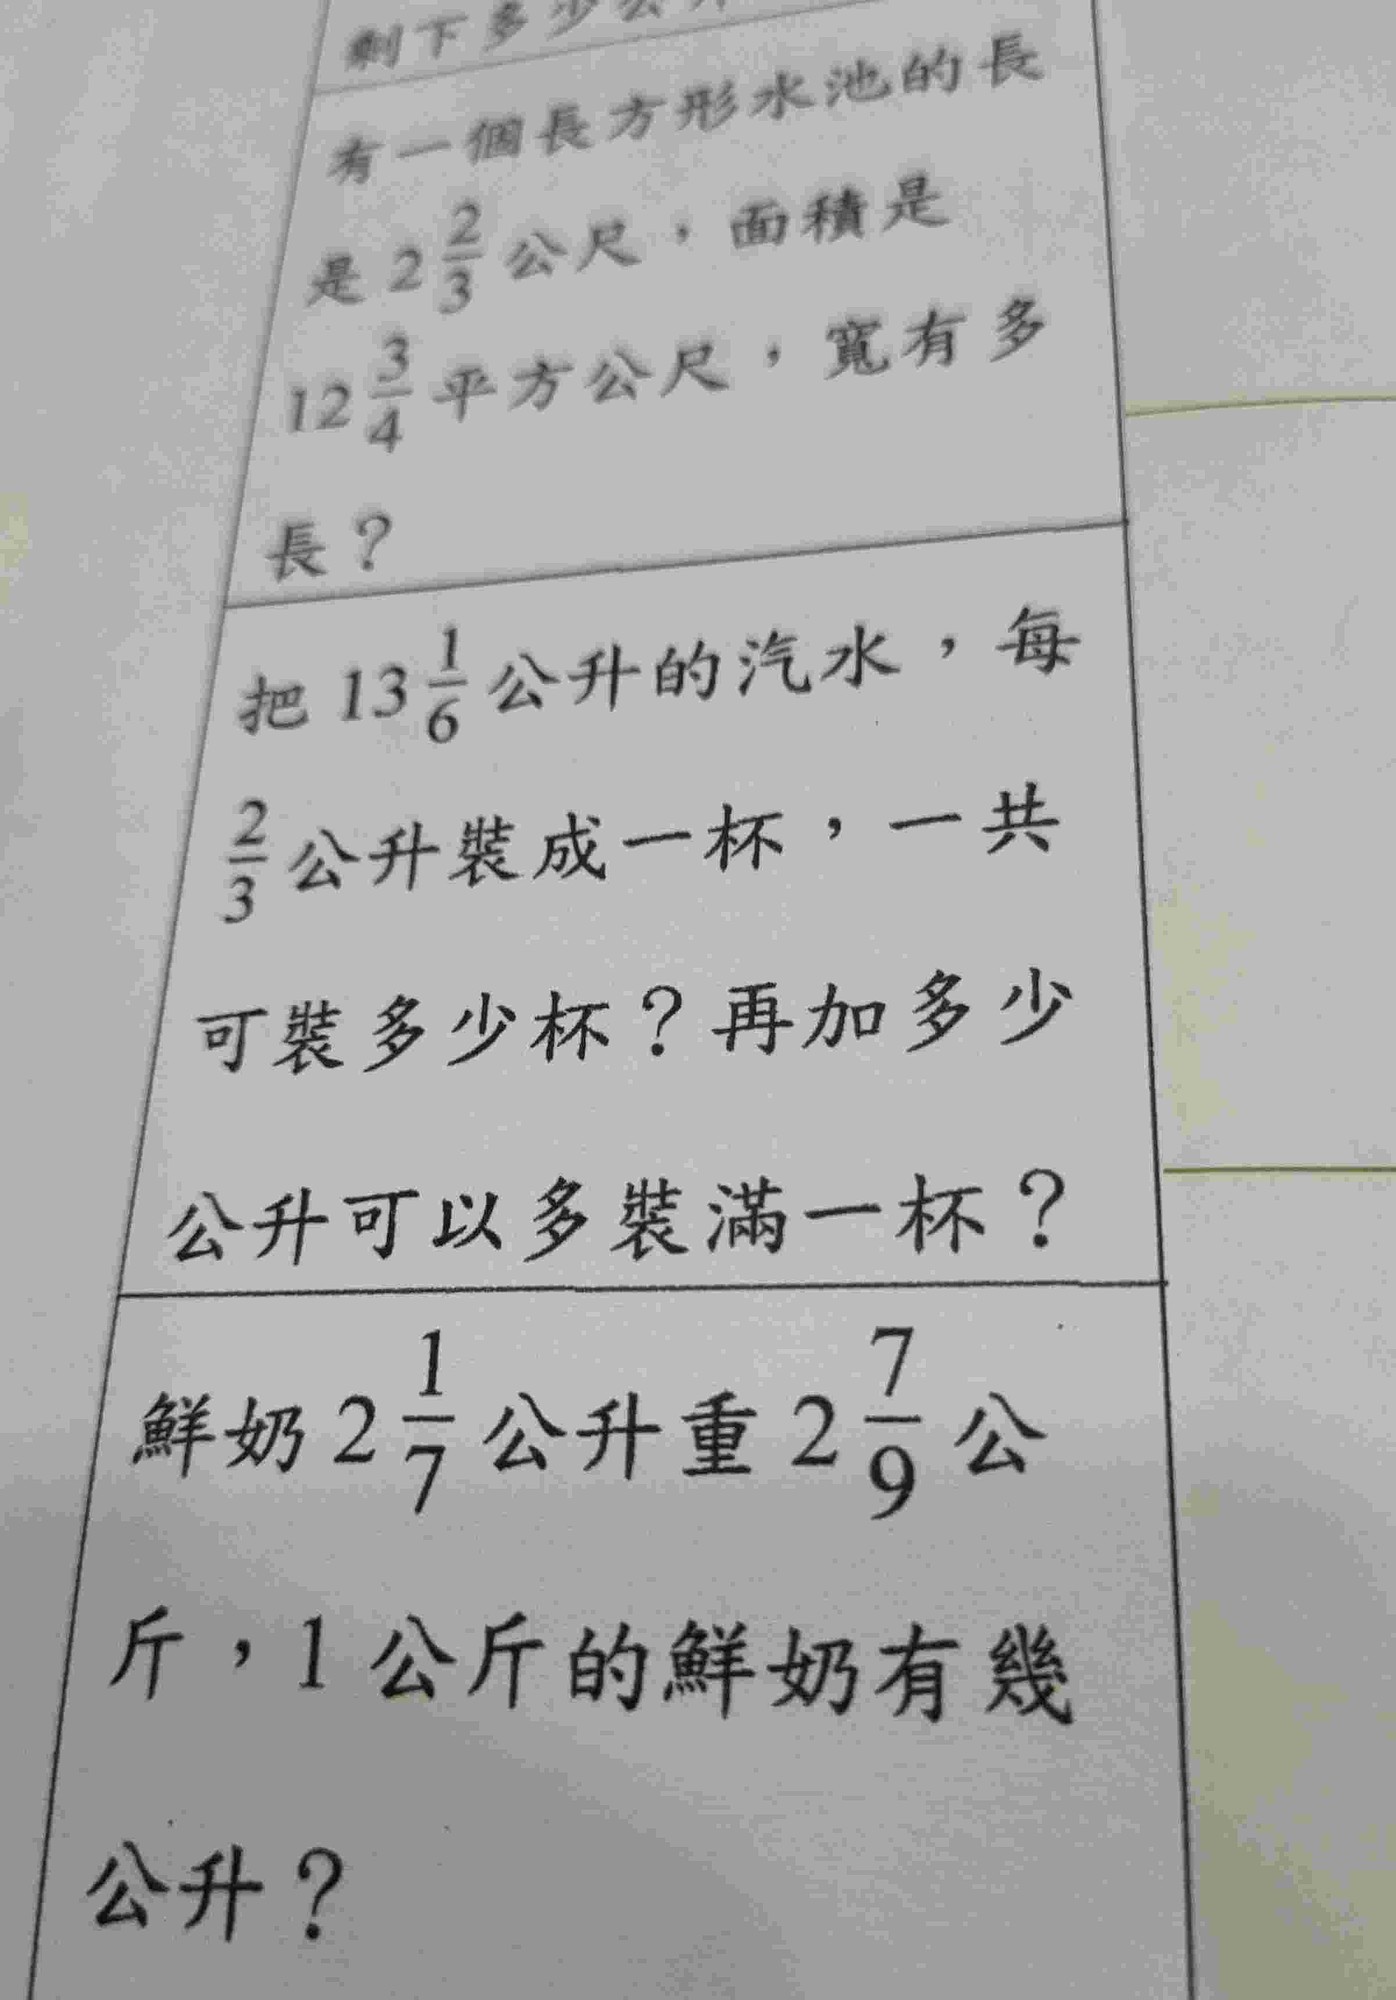 剩下多少公升
有一個長方形水池的長
是 2 2/3 公尺，面積是
12 3/4 平方公尺，寬有多
長？
把 13 1/6 公升的汽水，每
2/3 公升裝成一杯，一共
可裝多少杯？再加多少
公升可以多裝滿一杯？
鮮奶 2 1/7 公升重 2 7/9 公
斤，1 公斤的鮮奶有幾
公升？